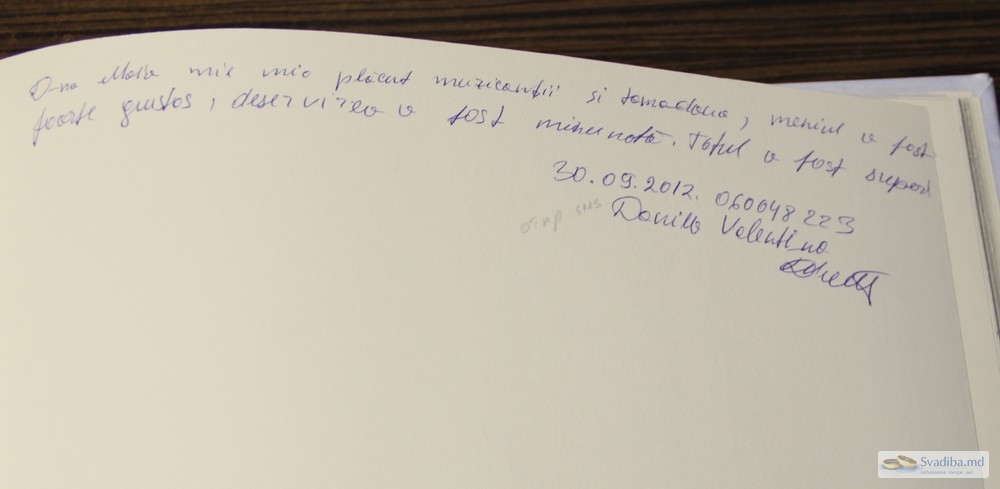 D-na Maria mie mio plăcut muzicanții si tamadana, meniul a fost
foarte gustos, deservirea a fost minunată. Totul a fost super.
30.09.2012. 060048223
отпр SMS Danilo Valentina
Svadiba.md